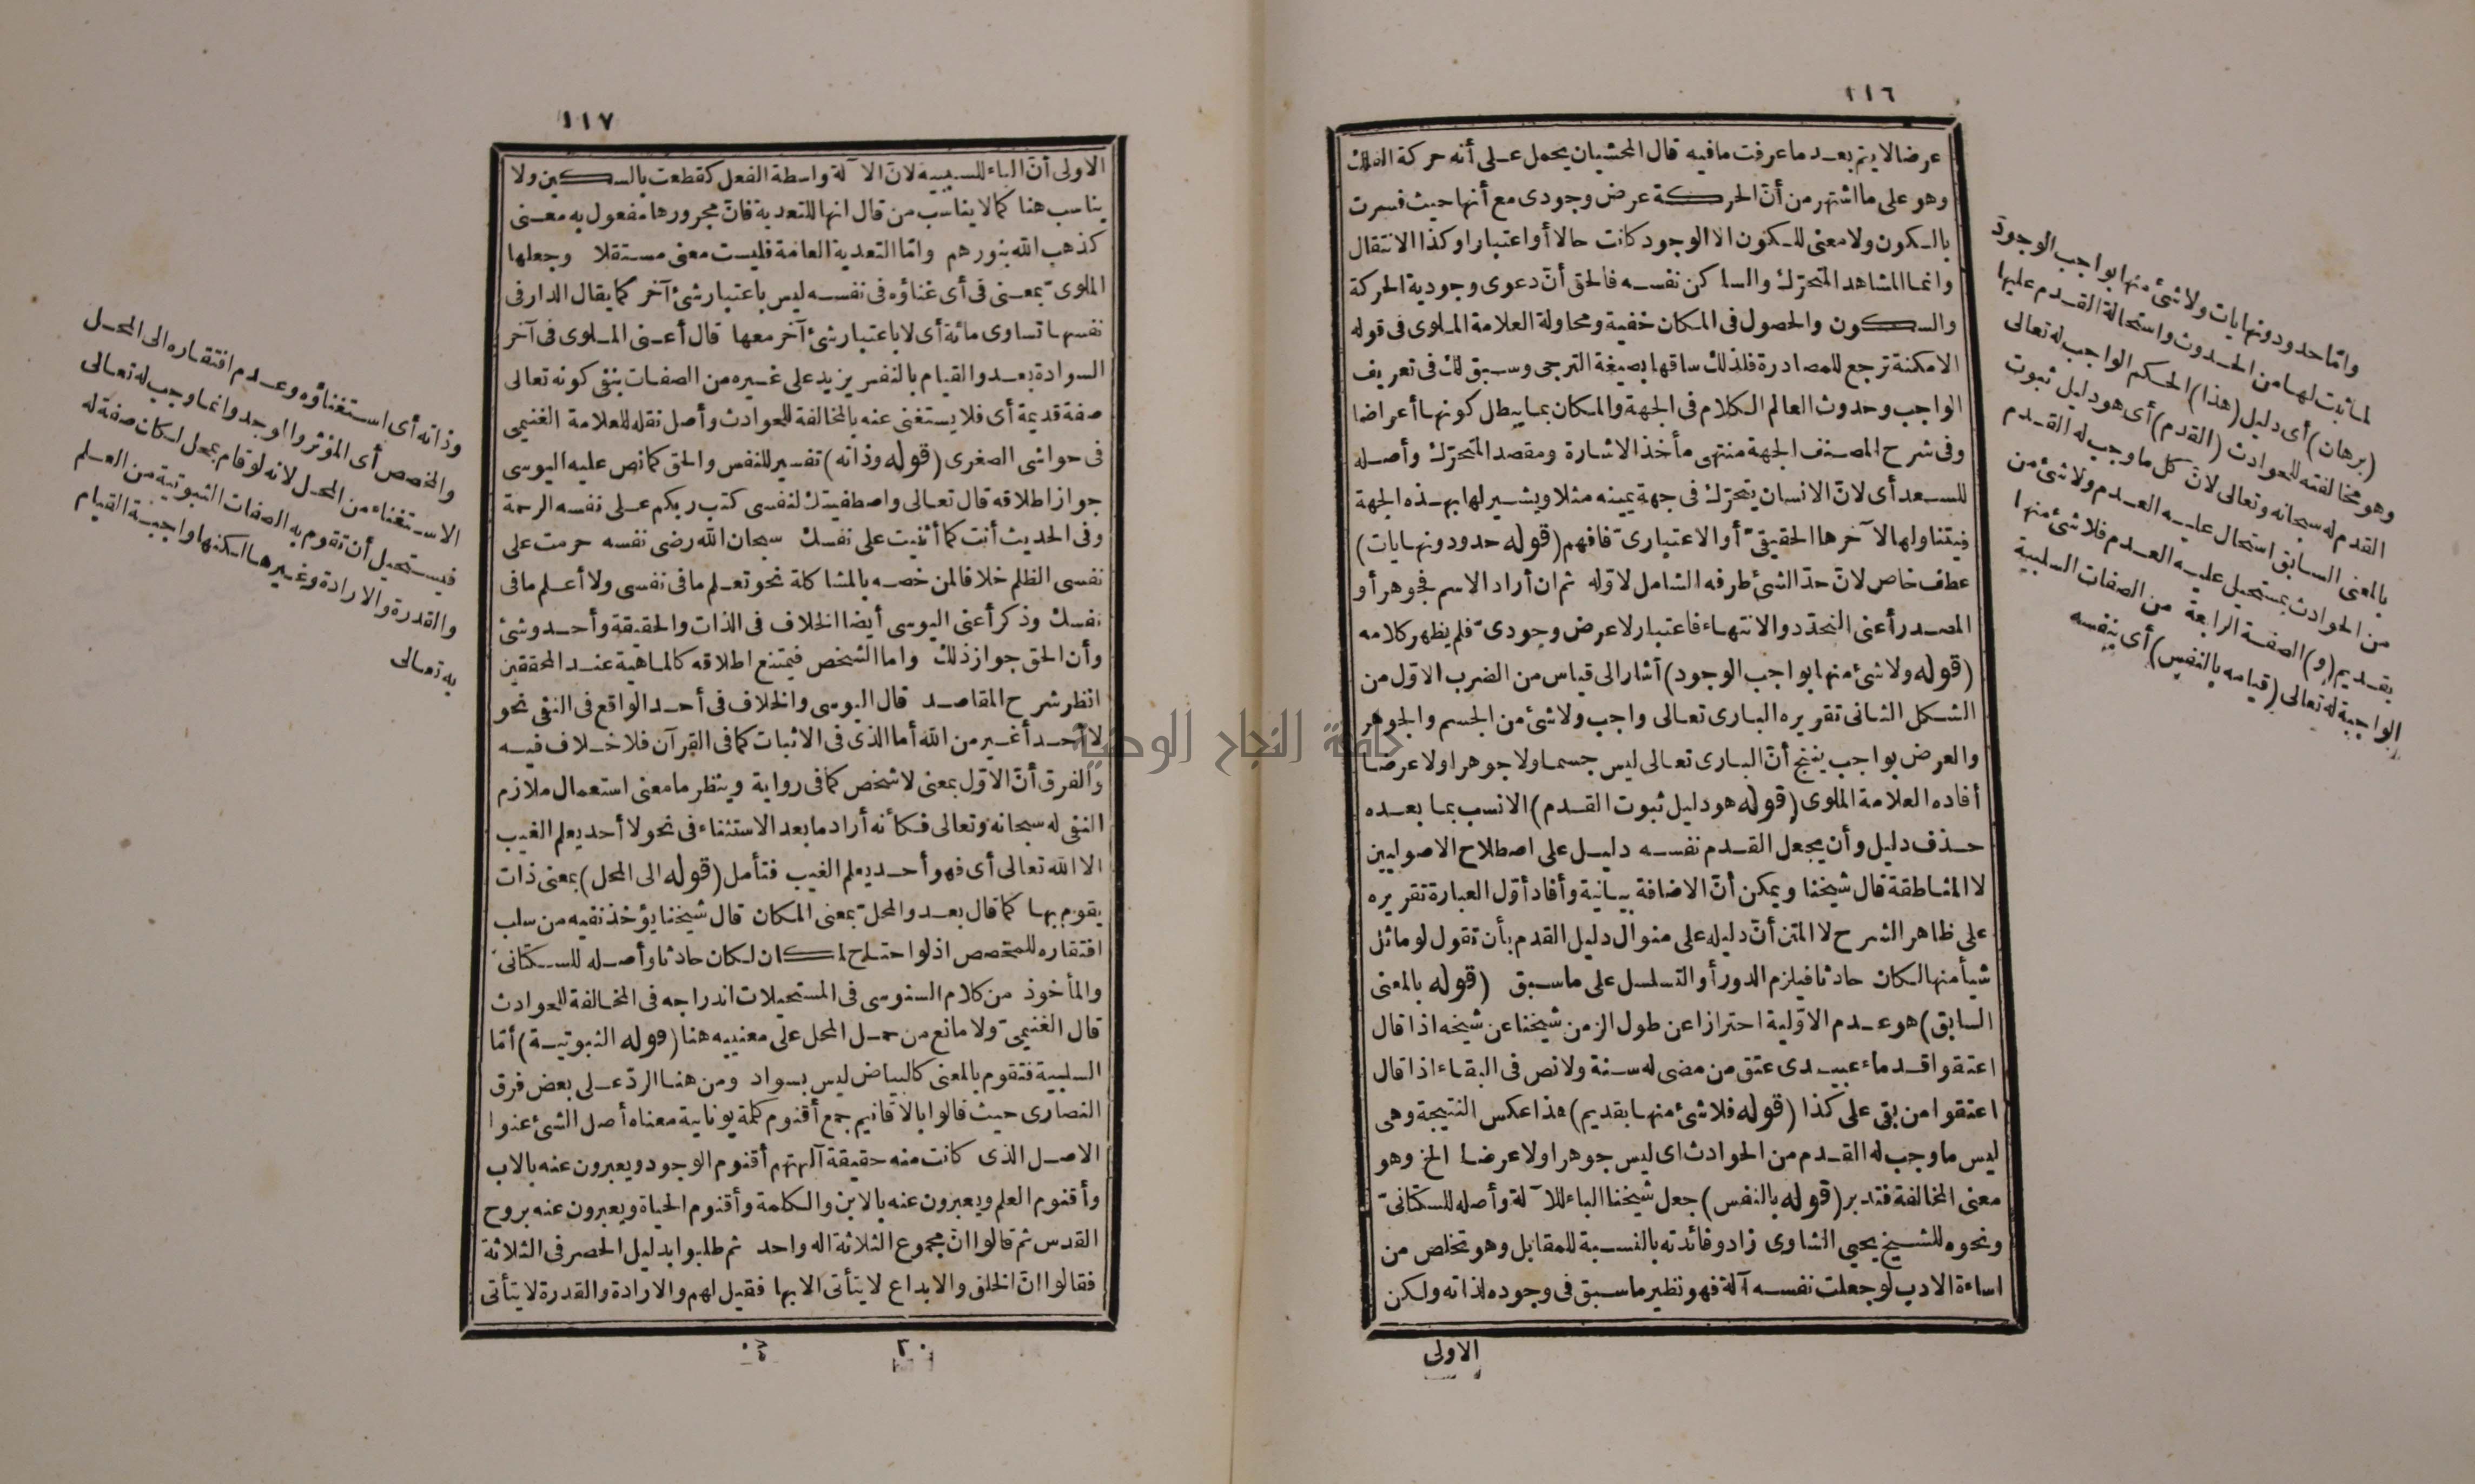 ١١٦
عرضا لا يتم بعد ما عرفت ما فيه قال المحشيان يحمل على أنه حركة الفلك
وهو على ما اشتهر من أنّ الحركة عرض وجودى مع أنها حيث فسرت
بالكون ولا معنى للكون الا الوجود كانت حالا أو اعتبارا وكذا الانتقال
وانما المشاهد المتحرّك والساكن نفسه فالحق أنّ دعوى وجودية الحركة
والسكون والحصول فى المكان خفية ومحاولة العلامة الملوى فى قوله
الامكنة ترجع للمصادرة فلذلك ساقها بصيغة الترجى وسبق لك فى تعريف
الواجب وحدوث العالم الكلام فى الجهة والمكان بما يبطل كونها أعراضا
وفى شرح المصنف الجهة منتهى مأخذ الاشارة ومقصد المتحرّك وأصله
للسعد أى لانّ الانسان يتحرّك فى جهة يمينه مثلا ويشير لها بهذه الجهة
فيتناولها لآخرها الحقيقىّ أو الاعتبارىّ فافهم (قوله حدود ونهايات)
عطف خاص لانّ حدّ الشئ طرفه الشامل لاوّله ثم ان أراد الاسم فجوهر أو
المصدر أعنى التحدّد والانتهاء فاعتبار لا عرض وجودىّ فلم يظهر كلامه
(قوله ولا شئ منها بواجب الوجود) أشار الى قياس من الضرب الاوّل من
الشكل الثانى تقريره البارى تعالى واجب ولا شئ من الجسم والجوهر
والعرض بواجب ينتج أنّ البارى تعالى ليس جسما ولا جوهرا ولا عرضا
أفاده العلامة الملوى (قوله هو دليل ثبوت القدم) الانسب بما بعده
حذف دليل وأن يجعل القدم نفسه دليل على اصطلاح الاصوليين
لا المناطقة قال شيخنا ويمكن أنّ الاضافة بيانية وأفاد أوّل العبارة تقريره
على ظاهر الشرح لا المتن أنّ دليله على منوال دليل القدم بأن تقول لو ماثل
شيأ منها لكان حادثا فيلزم الدور أو التسلسل على ما سبق (قوله بالمعنى
السابق) هو عدم الاوّلية احترازا عن طول الزمن شيخنا عن شيخه اذا قال
اعتقوا قدماء عبيدى عتق من مضى له سنة ولا نص فى البقاء اذا قال
اعتقوا من بقى على كذا (قوله فلا شئ منها بقديم) هذا عكس النتيجة وهى
ليس ما وجب له القدم من الحوادث اى ليس جوهرا ولا عرضا الخ وهو
معنى المخالفة فتدبر (قوله بالنفس) جعل شيخنا الباء للآلة وأصله للسكتانىّ
ونحوه للشيخ يحيى الشاوى زاد وفائدته بالنسبة للمقابل وهو تخلص من
اساءة الادب لو جعلت نفسه آلة فهو نظير ما سبق فى وجوده لذاته ولكن
الاولى
وامّا حدود ونهايات ولا شئ منها بواجب الوجود
لما ثبت لها من الحدوث واستحالة القدم عليها
(برهان) أى دليل (هذا) الحكم الواجب له تعالى
وهو مخالفته للحوادث (القدم) أى هو دليل ثبوت
القدم له سبحانه وتعالى لانّ كل ما وجب له القدم
بالمعنى السابق استحال عليه العدم ولا شئ من
من الحوادث بمستحيل عليه العدم فلا شئ منها
بقديم (و) الصفة الرابعة من الصفات السلبية
الواجبة له تعالى (قيامه بالنفس) أى بنفسه
١١٧
الاولى أنّ الباء للسببية لانّ الآلة واسطة الفعل كقطعت بالسكين ولا
يناسب هنا كما لا يناسب من قال انها للتعدية فانّ مجرورها مفعول به معنى
كذهب الله بنورهم وامّا التعدية العامة فليست معنى مستقلا وجعلها
الملوىّ بمعنى فى أى غناؤه فى نفسه ليس باعتبار شئ آخر كما يقال الدار فى
نفسها تساوى مائة أى لا باعتبار شئ آخر معها قال أعنى الملوى فى آخر
السوادة بعد والقيام بالنفس يزيد على غيره من الصفات بنفى كونه تعالى
صفة قديمة أى فلا يستغنى عنه بالمخالفة للحوادث وأصل نقله للعلامة الغنيمى
فى حواشى الصغرى (قوله وذاته) تفسير للنفس والحق كما نص عليه اليوسى
جواز اطلاقه قال تعالى واصطفيتك لنفسى كتب ربكم على نفسه الرحمة
وفى الحديث أنت كما أثنيت على نفسك سبحان الله رضى نفسه حرمت على
نفسى الظلم خلافا لمن خصه بالمشاكلة نحو تعلم ما فى نفسى ولا أعلم ما فى
نفسك وذكر أعنى اليوسى أيضا الخلاف فى الذات والحقيقة وأحد وشئ
وأن الحق جواز ذلك واما الشخص فيمتنع اطلاقه كالماهية عند المحققين
انظر شرح المقاصد قال اليوسى والخلاف فى أحد الواقع فى النفى نحو
لا أحد أغير من الله أما الذى فى الاثبات كما فى القرآن فلا خلاف فيه
والفرق أنّ الاوّل بمعنى لا شخص كما فى رواية وينظر ما معنى استعمال ملازم
النفى له سبحانه وتعالى فكأنه أراد ما بعد الاستثناء فى نحو لا أحد يعلم الغيب
الا الله تعالى أى فهو أحد يعلم الغيب فتأمل (قوله الى المحل) بمعنى ذات
يقوم بها كما قال بعد والمحلّ بمعنى المكان قال شيخنا يؤخذ نفيه من سلب
افتقاره للمخصص اذ لو احتاج لمكان لكان حادثا وأصله للسكتانى
والمأخوذ من كلام السنوسى فى المستحيلات اندراجه فى المخالفة للحوادث
قال الغنيمىّ ولا مانع من حمل المحل على معنييه هنا (قوله الثبوتية) أمّا
السلبية فتقوم بالمعنى كالبياض ليس بسواد ومن هنا الردّ على بعض فرق
النصارى حيث قالوا بالاقانيم جمع أقنوم كلمة يونانية معناه أصل الشئ عنوا
الاصل الذى كانت منه حقيقة آلهتهم أقنوم الوجود ويعبرون عنه بالاب
وأقنوم العلم ويعبرون عنه بالابن والكلمة وأقنوم الحياة ويعبرون عنه بروح
القدس ثم قالوا انّ مجموع الثلاثة اله واحد ثم طلبوا بدليل الحصر فى الثلاثة
فقالوا انّ الخلق والابداع لا يتأتى الا بها فقيل لهم والارادة والقدرة لا يتأتى
وذاته أى استغناؤه وعدم افتقاره الى المحل
والمخصص أى المؤثر والموجد وانما وجب له تعالى
الاستغناء عن المحل لانه لو قام بمحل لكان صفة له
فيستحيل أن تقوم به الصفات الثبوتية من العلم
والقدرة والارادة وغيرها لكنها واجبة القيام
به تعالى
جامعة النجاح الوطنية